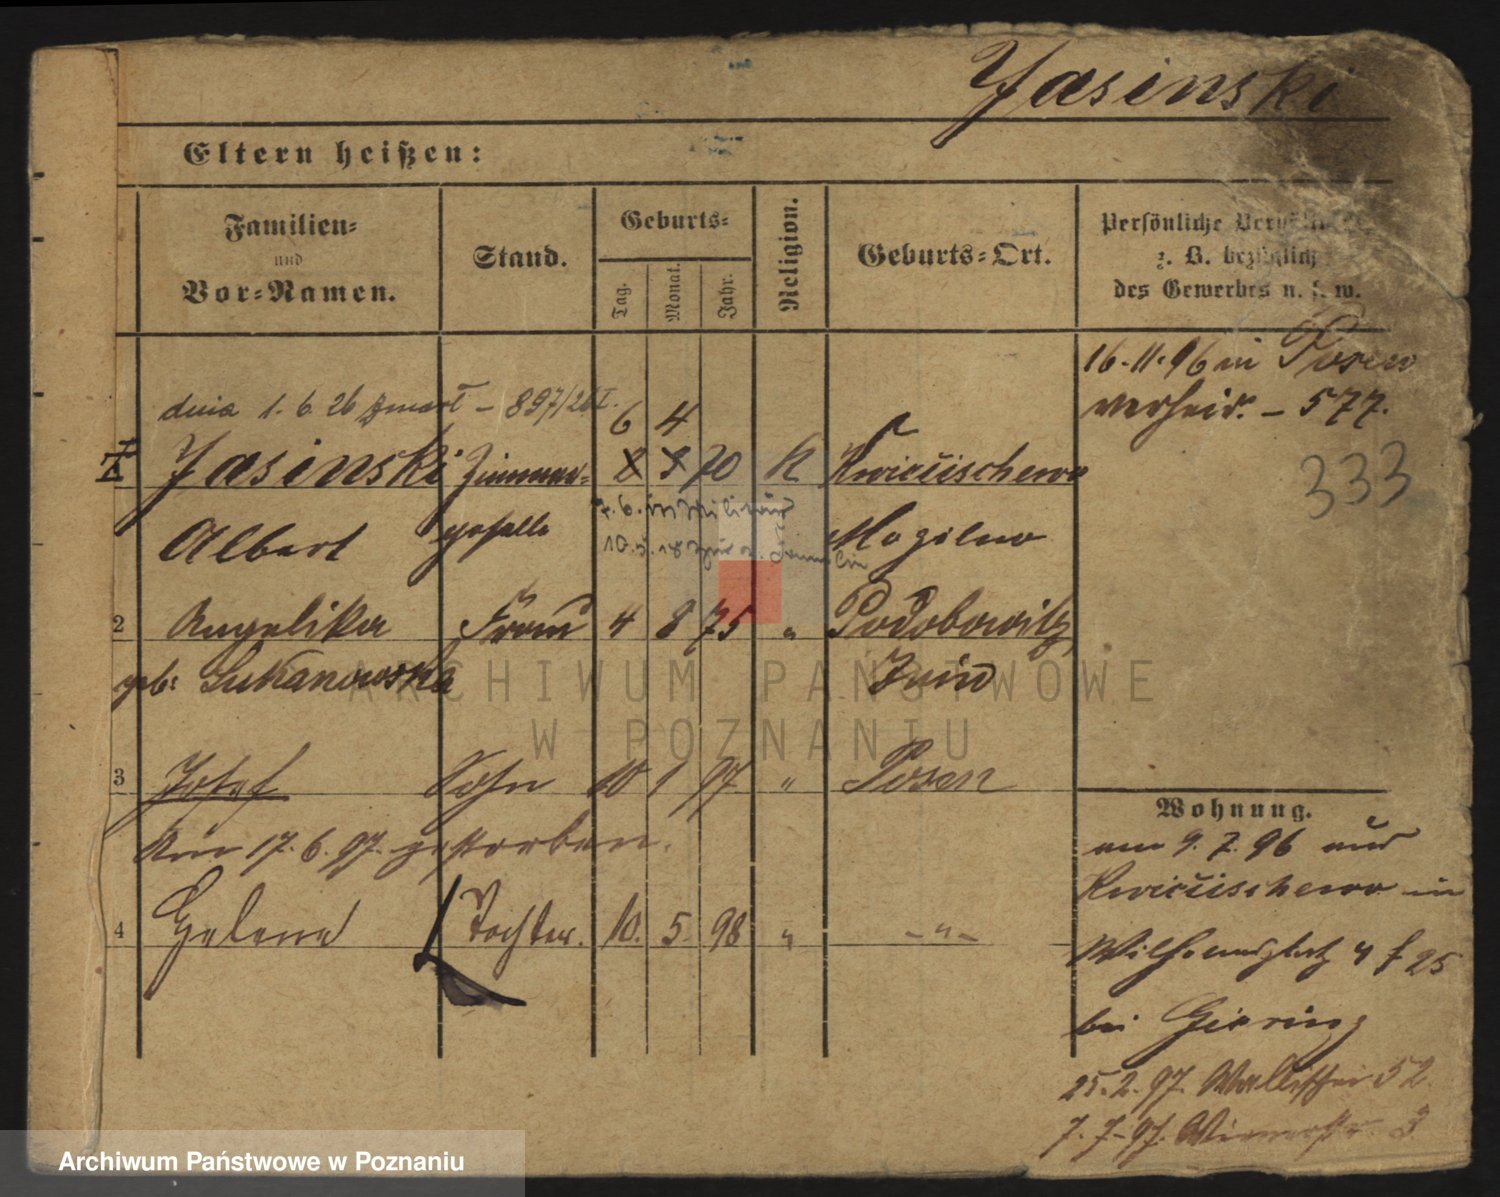 Jasinski
Eltern heißen:
Familien=
und
Vor=Namen.
Stand.
Geburts=
Tag.
Monat.
Jahr.
Religion.
Geburts=Ort.
Persönliche
z. B. bezüglich
des Gewerbes u. s. w.
16.11.96 in Posen
verheir. – 577.
333
dnia 1. 6. 26 zmarł – 897/26 I.
6 4
Jasinski Zimmer= 8 9 70 K Kwiecischewo
Albert geselle Mogilno
7. 6. Militär
10.5.
2 Angelika Frau 4 8 75 " Podobowitz
geb: Lukanowska Znin
3 Josef Sohn 10 1 97 " Posen
Am 17. 6. 97. gestorben.
4 Helena Tochter. 10. 5. 98 " – " –
Wohnung.
am 9. 7. 96 aus
Kwiecischewo in
Wilhelmsplatz 4 f 25
bei Giering
25. 2. 97. Wallischei 52.
7. 7. 97. 3
ARCHIWUM PAŃSTWOWE
W POZNANIU
Archiwum Państwowe w Poznaniu